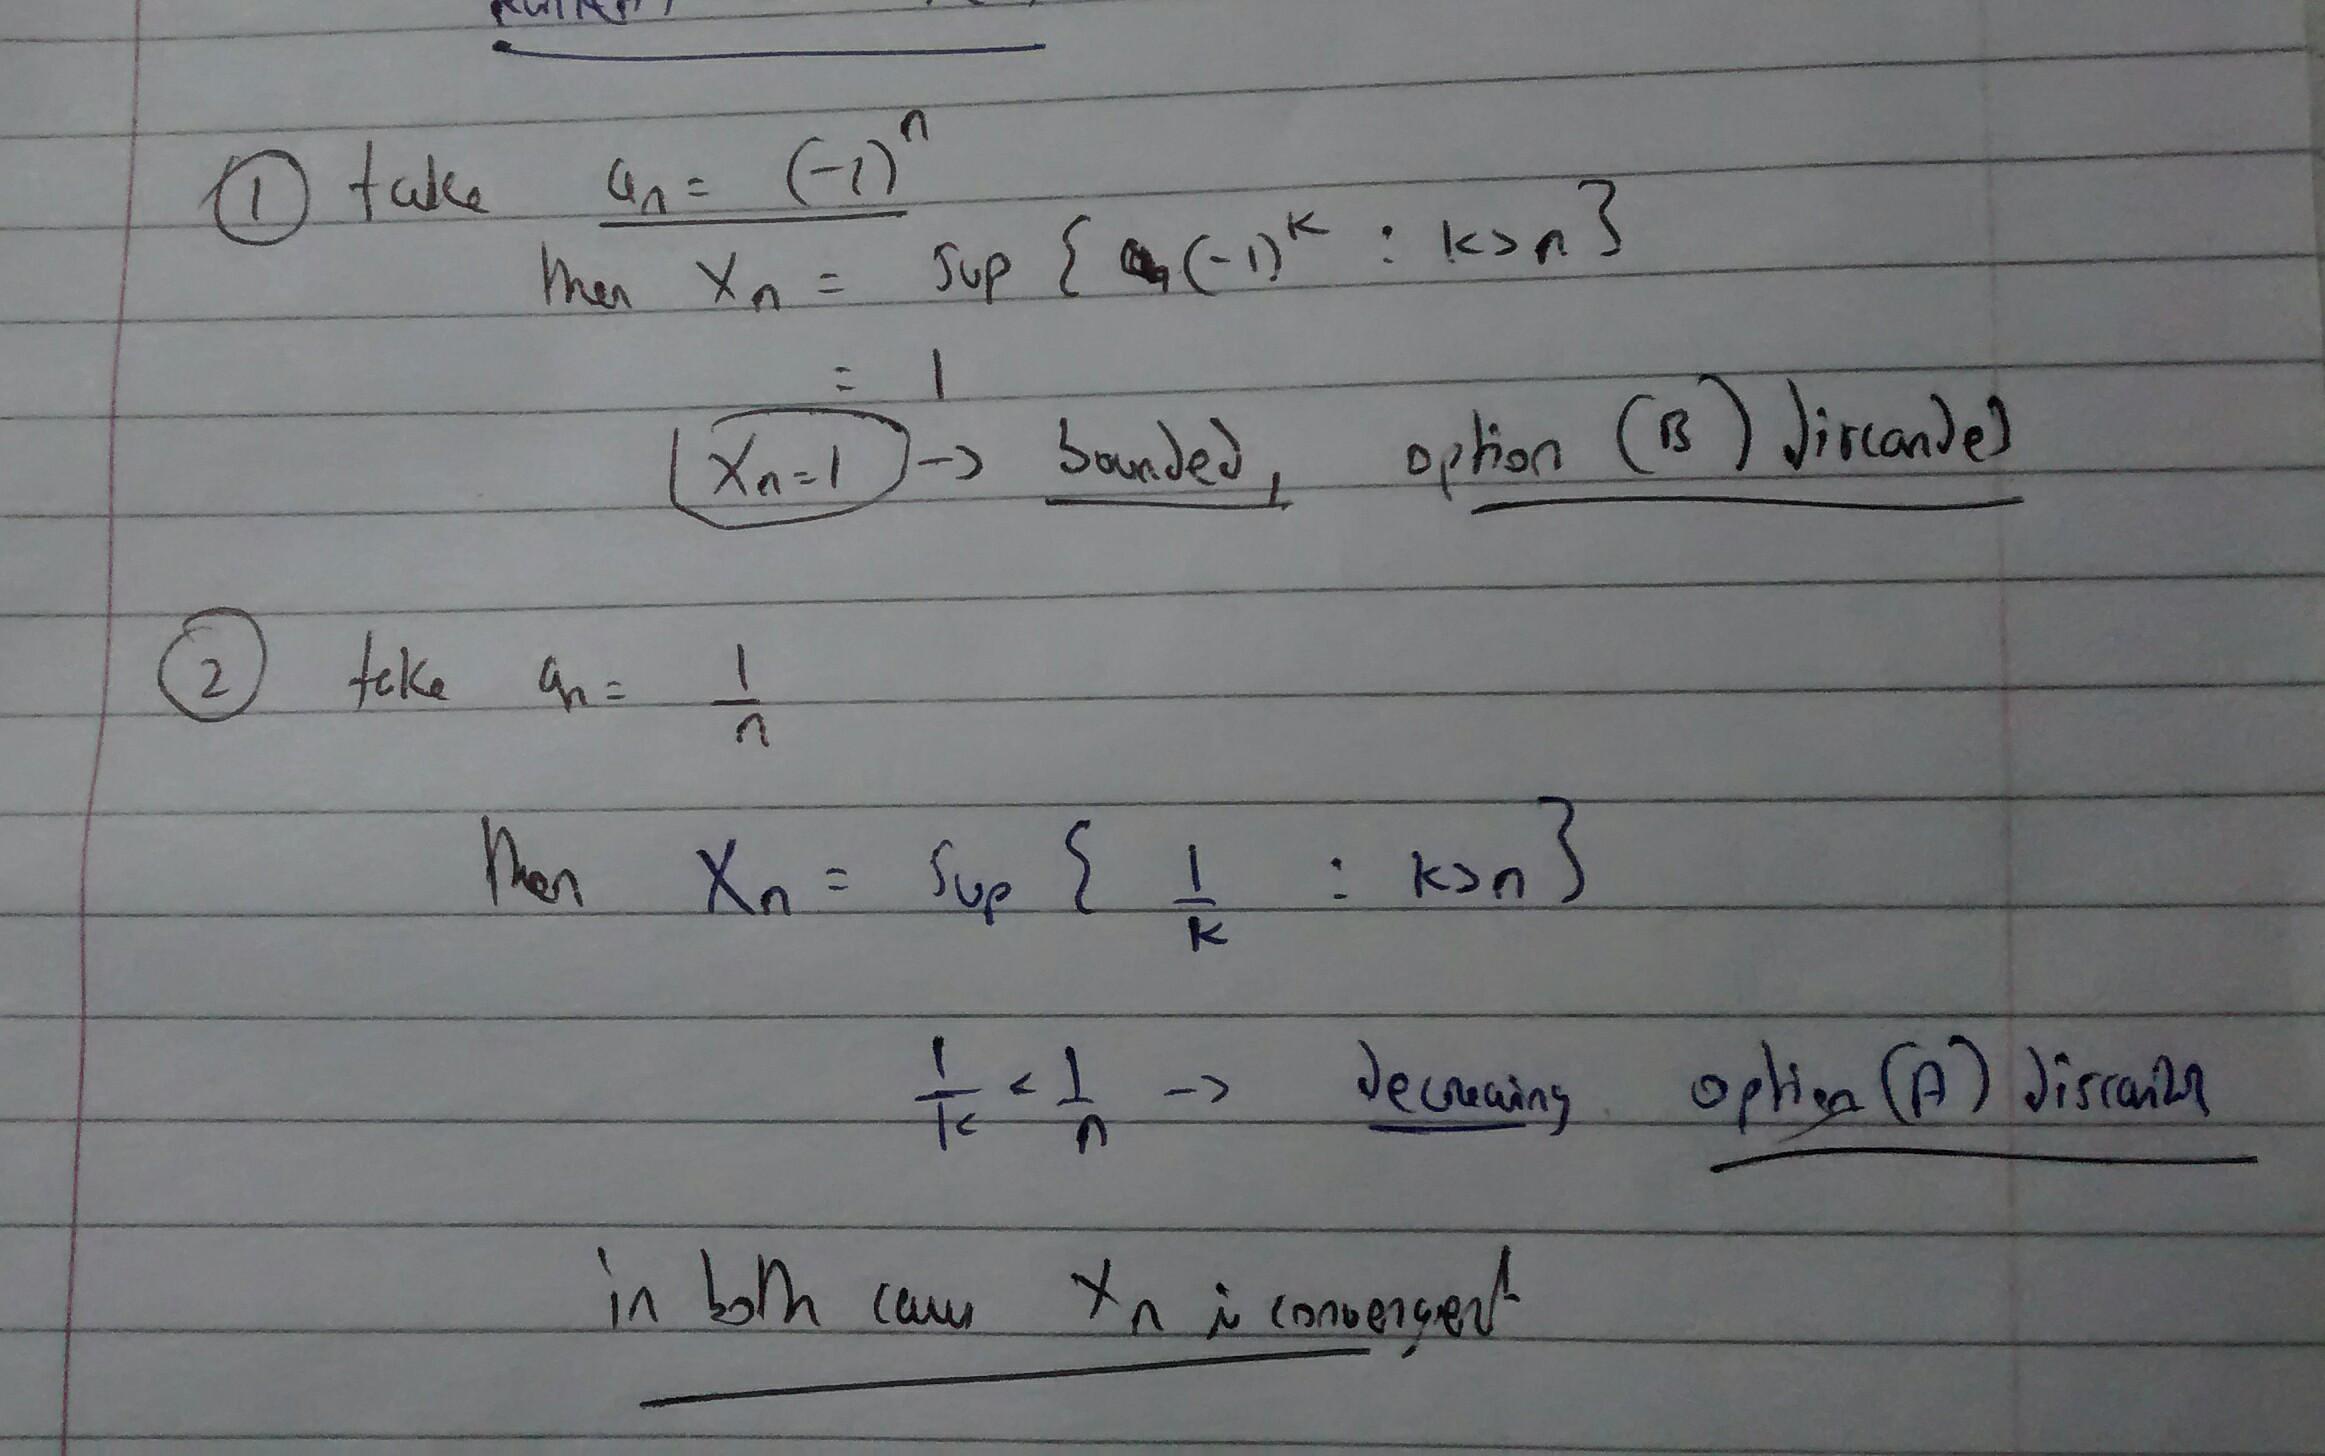 ① take aₙ = (-1)ⁿ
then Xₙ = Sup { (-1)ᵏ : k>n }
= 1
Xₙ=1 → bounded, option (B) discarded
② take aₙ = 1/n
then Xₙ = Sup { 1/k : k>n }
1/k < 1/n → decreasing option (A) discarded
in both cases Xₙ is convergent